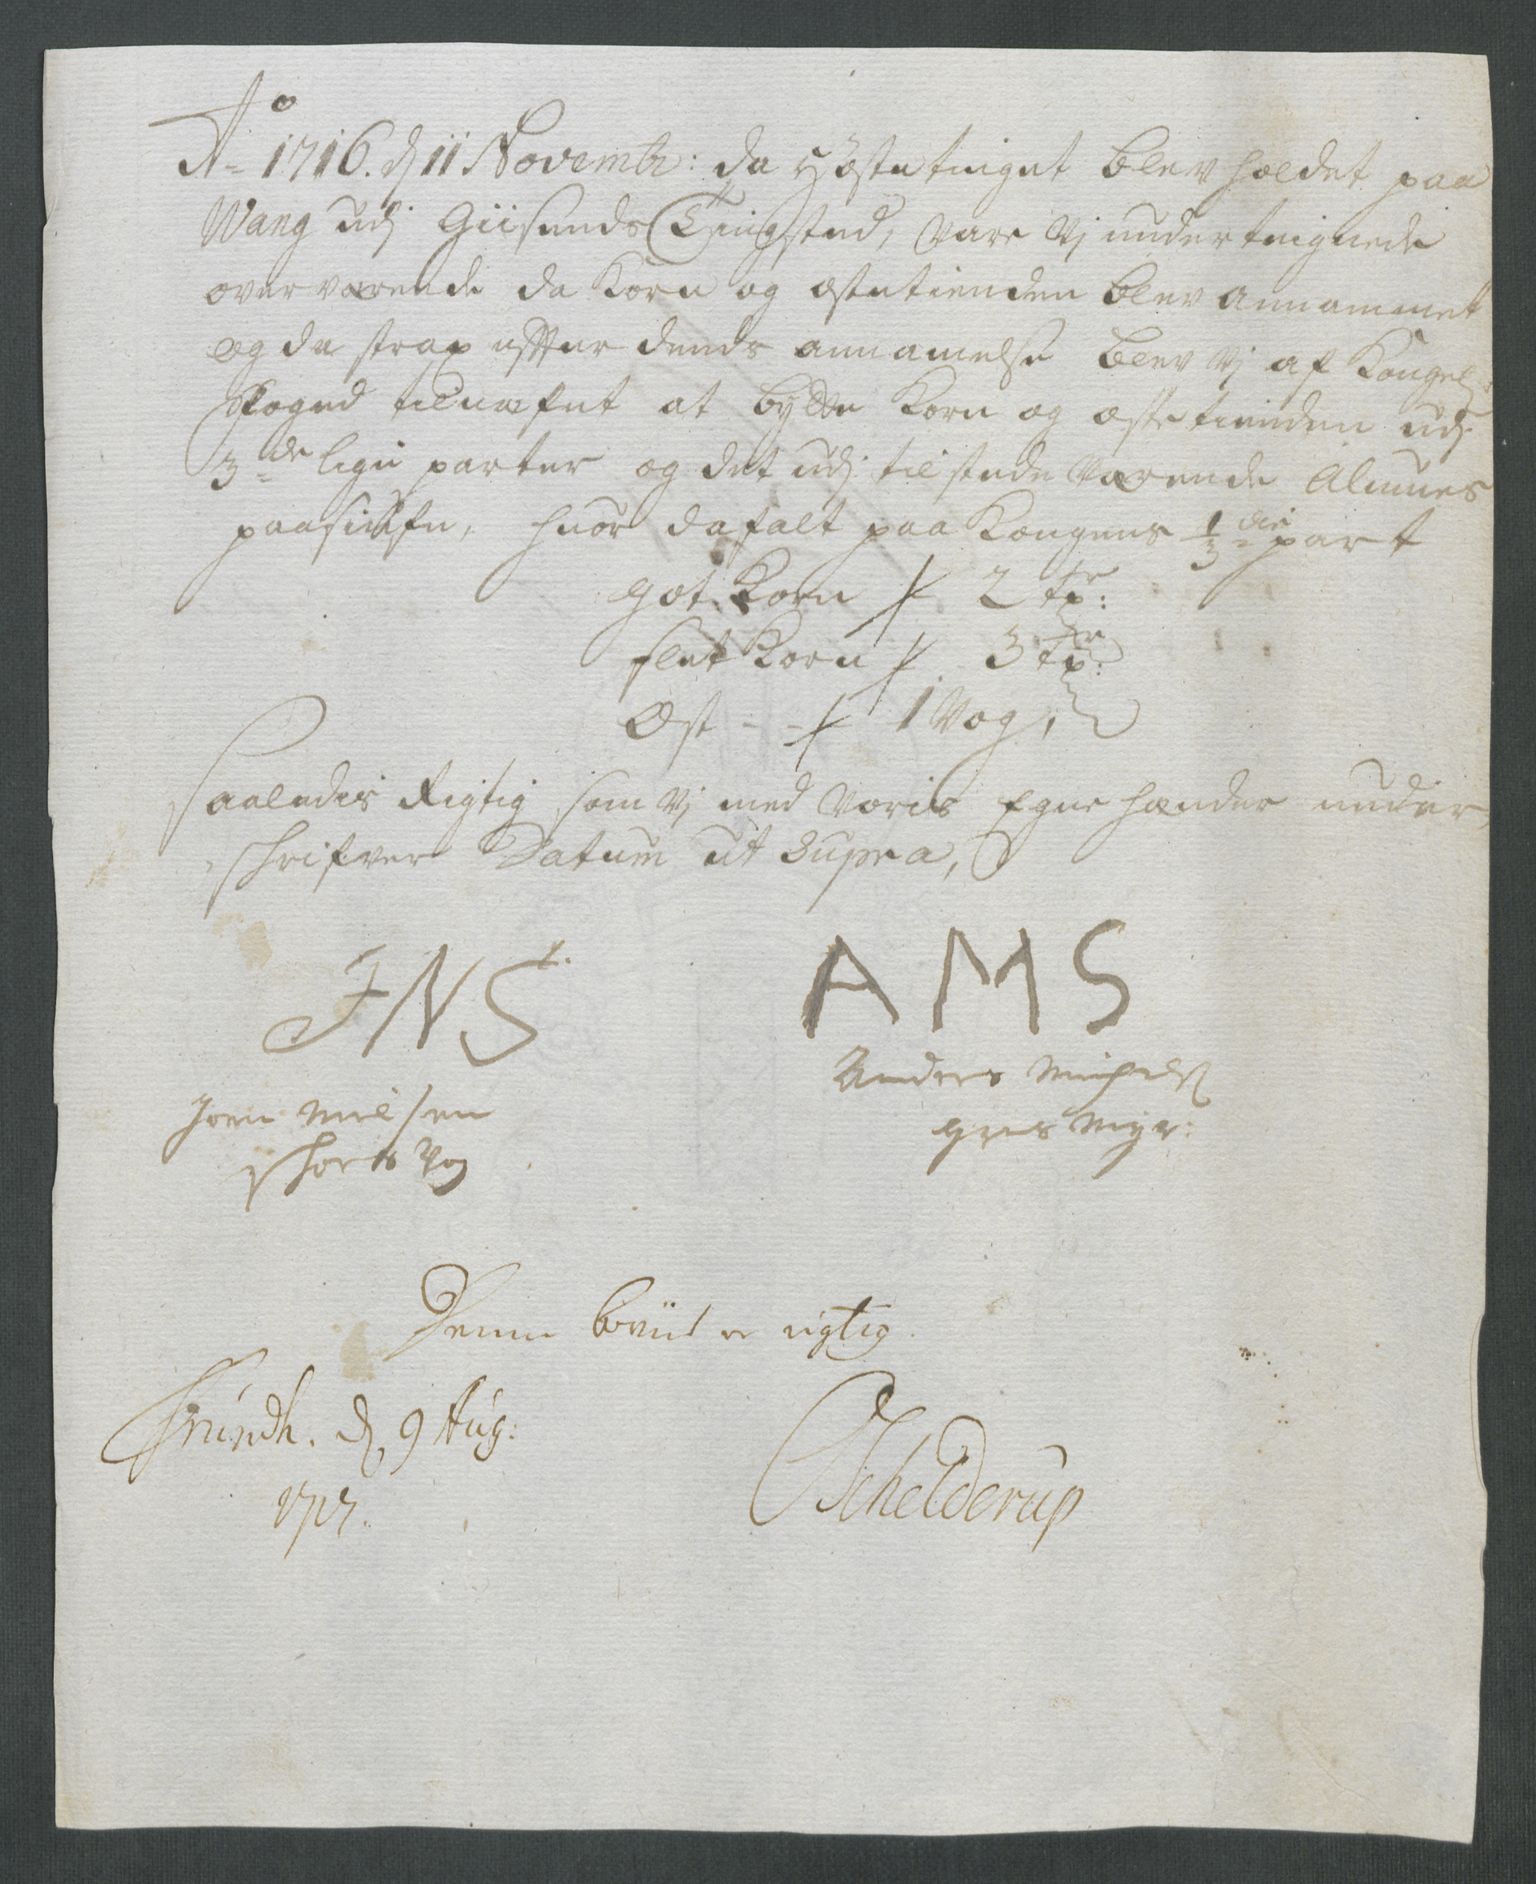 Ao 1716. d 11 Novembr: da Höstetinget blev holdet paa
Wang udj Giisunds Tingsted, vare vj underteignede
overværende da Korn og ostetienden blev annammet
og da strax efter dends annamelse blev vj af Kongel:
Foged tilnæfnt at bÿtte Korn og ostetienden udj
3de lige parter og det udj tilstede værende Almues
paasiufn, huor da falt paa Kongens 1/3die part
got Korn 2 tr:
slet Korn 3 tr:
Ost - - 1 Vog,
Saaledis Rigtig som vj med voris Egne hænder under
schrifver Datum ut Supra,
INS
AMS
Joen Nielsen
Anders Michels
Denne boviis er rigtig.
Trundh. d 9 Aug:
1717.
Schelderup